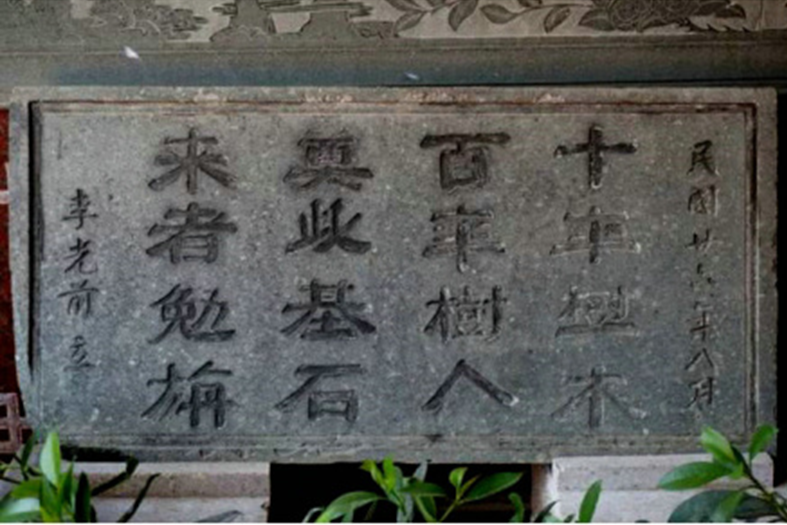 民國廿六年八月
十年樹木
百年樹人
奠此基石
来者勉旃
李光前立